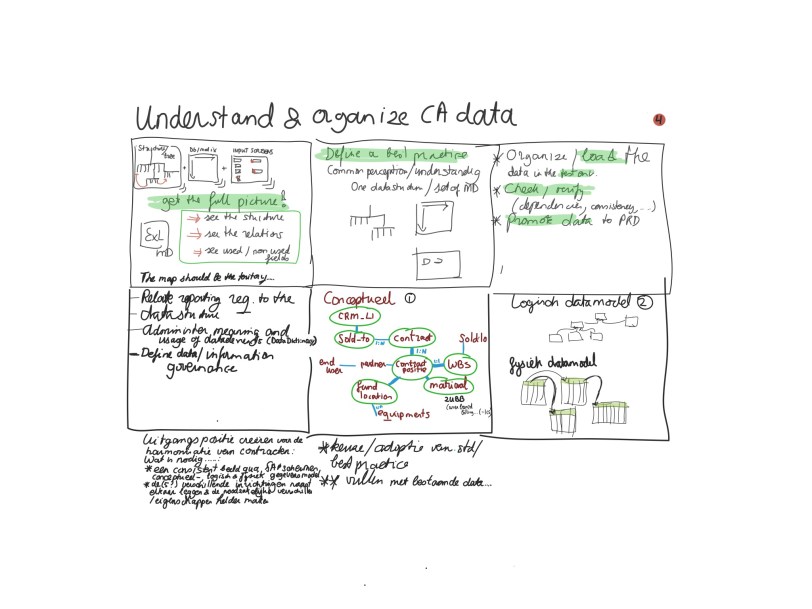 Understand & organize CA data
4
Structure/tree
+
+
INPUT SCREENS
get the full picture!
ExL
MD
⇒ see the structure
⇒ see the relations
⇒ see used / non used
fields
The map should be the
Define a best practice
Common perception/understandig
One datastructure / set of MD
* Organize / load the
data in the
* Check / verify
(dependencies, consistency....)
* Promote data to PRD
- Relate reporting req. to the
- datastructure
- Administer meaning and
usage of dataelements (Data Dictionary)
- Define data/information
governance
Conceptueel ①
CRM_LI
Sold_to
1:N
Contract
1:N
Sold to
End
user
partner
Contract
positie
1:1
WBS
fund
location
material
ZUBB
equipments
Logisch datamodel ②
fysiek datamodel
Uitgangspositie creëren voor de
harmonisatie van contracten:
Wat is nodig.....:
* een consistent beeld qua, SAP schermen,
conceptueel-, logisch & fysiek gegevensmodel
* de (5?) verschillende inrichtingen naast
elkaar leggen & de noodzakelijke verschillen
/eigenschappen helder maken
* keuze/adoptie van std/
best practice
** vullen met bestaande data...